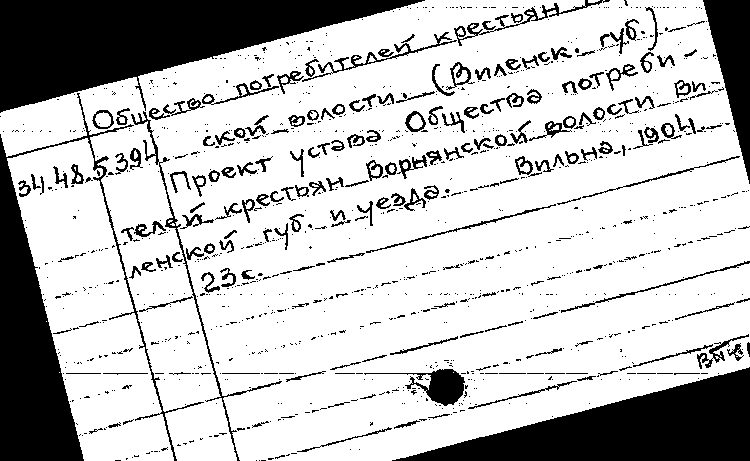 Общество потребителей крестьян
ской волости. (Виленск. губ.).
34.48.5.394.
Проект устава Общества потреби-
телей крестьян Ворнянской волости Ви-
ленской губ. и уезда. Вильна, 1904.
23 с.